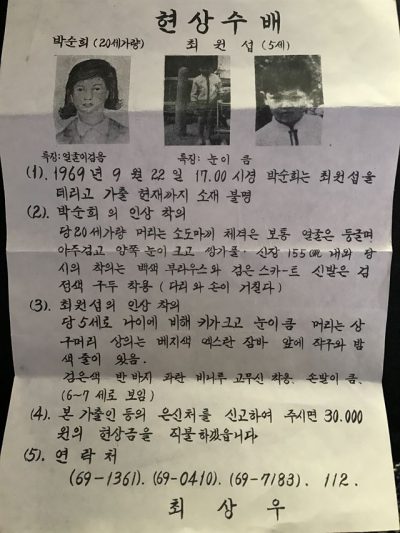 현상수배
박순희 (20세가량) 최원섭 (5세)
특징: 얼굴이검음 특징: 눈이 큼
(1). 1969년 9월 22일 17.00시경 박순희는 최원섭을
데리고 가출 현재까지 소재 불명
(2). 박순희의 인상 착의
당 20세가량 머리는 소도마끼 체격은 보통 얼굴은 둥글며
아주검고 양쪽 눈이 크고 쌍가풀. 신장 155㎝ 내외 당
시의 착의는 백색 부라우스와 검은 스카-트 신발은 검
정색 구두 착용 (다리와 손이 거칠다)
(3). 최원섭의 인상 착의
당 5세로 나이에 비해 키가크고 눈이큼 머리는 상
구머리 상의는 베지색 엑스란 잠바 앞에 작구와 밤
색 줄이 있음.
검은색 반바지 파란 비니루 고무신 착용. 손발이 큼.
(6~7세로 보임)
(4). 본 가출인 등의 은신처를 신고하여 주시면 30.000
원의 현상금을 직불하겠읍니다
(5). 연락처
(69-1361). (69-0410). (69-7183). 112.
최상우